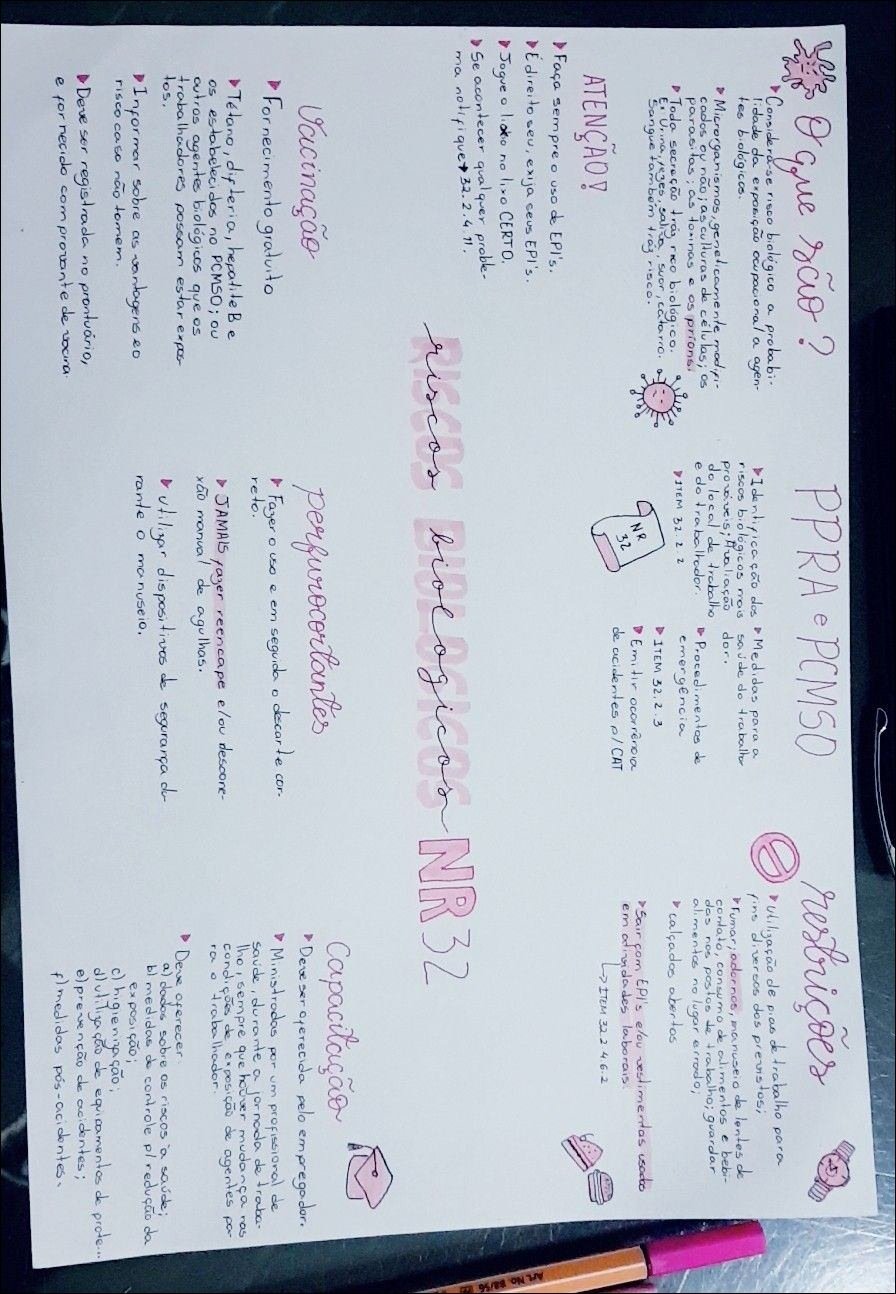 O que são?
Considera-se risco biológico a probabi-
lidade da exposição ocupacional a agen-
tes biológicos.
Microrganismos, geneticamente modifi-
cados ou não; as culturas de células; os
parasitas; as toxinas e os príons;
Toda secreção tráz risco biológico.
Ex: Urina, fezes, saliva, suor, catarro.
Sangue também tráz risco.
PPRA e PCMSO
Identificação dos
riscos biológicos mais
prováveis; Avaliação
do local de trabalho
e do trabalhador.
ITEM 32.2.2
NR
32
Medidas para a
saúde do trabalha
dor.
Procedimentos de
emergência
ITEM 32.2.3
Emitir ocorrência
de acidentes p/ CAT
restrições
Utilização de pias de trabalho para
fins diversos dos previstos;
Fumar, adornos, manuseio de lentes de
contato, consumo de alimentos e bebi-
das nos postos de trabalho; guardar
alimentos no lugar errado;
calçados abertos
Sair com EPI's e/ou vestimentas usadas
em atividades laborais.
ITEM 32.2.4.6.2
ATENÇÃO!
Faça sempre o uso de EPI's.
É direito seu, exija seus EPI's.
Jogue o lixo no lixo CERTO.
Se acontecer qualquer proble-
ma notifique → 32.2.4.11.
RISCOS BIOLOGICOS
riscos biologicos NR 32
Vacinação
Fornecimento gratuito
Tétano, difteria, hepatite B e
os estabelecidos no PCMSO; ou
outros agentes biológicos que os
trabalhadores possam estar expos-
tos.
Informar sobre as vantagens e o
risco caso não tomem.
Deve ser registrada no prontuário,
e fornecido comprovante de vacina.
perfurocortantes
Fazer o uso e em seguida o descarte cor-
reto.
JAMAIS fazer reencape e/ou descone-
xão manual de agulhas.
Utilizar dispositivos de segurança du-
rante o manuseio.
Capacitação
Deve ser oferecida pelo empregador.
Ministradas por um profissional de
saúde, durante a jornada de traba-
lho, sempre que houver mudança nas
condições de exposição de agentes pa-
ra o trabalhador.
Deve oferecer:
a) dados sobre os riscos à saúde;
b) medidas de controle p/ redução da
exposição;
c) higienização;
d) utilização de equipamentos de prote...
e) prevenção de acidentes;
f) medidas pós-acidentes.
Art. No. 88/56